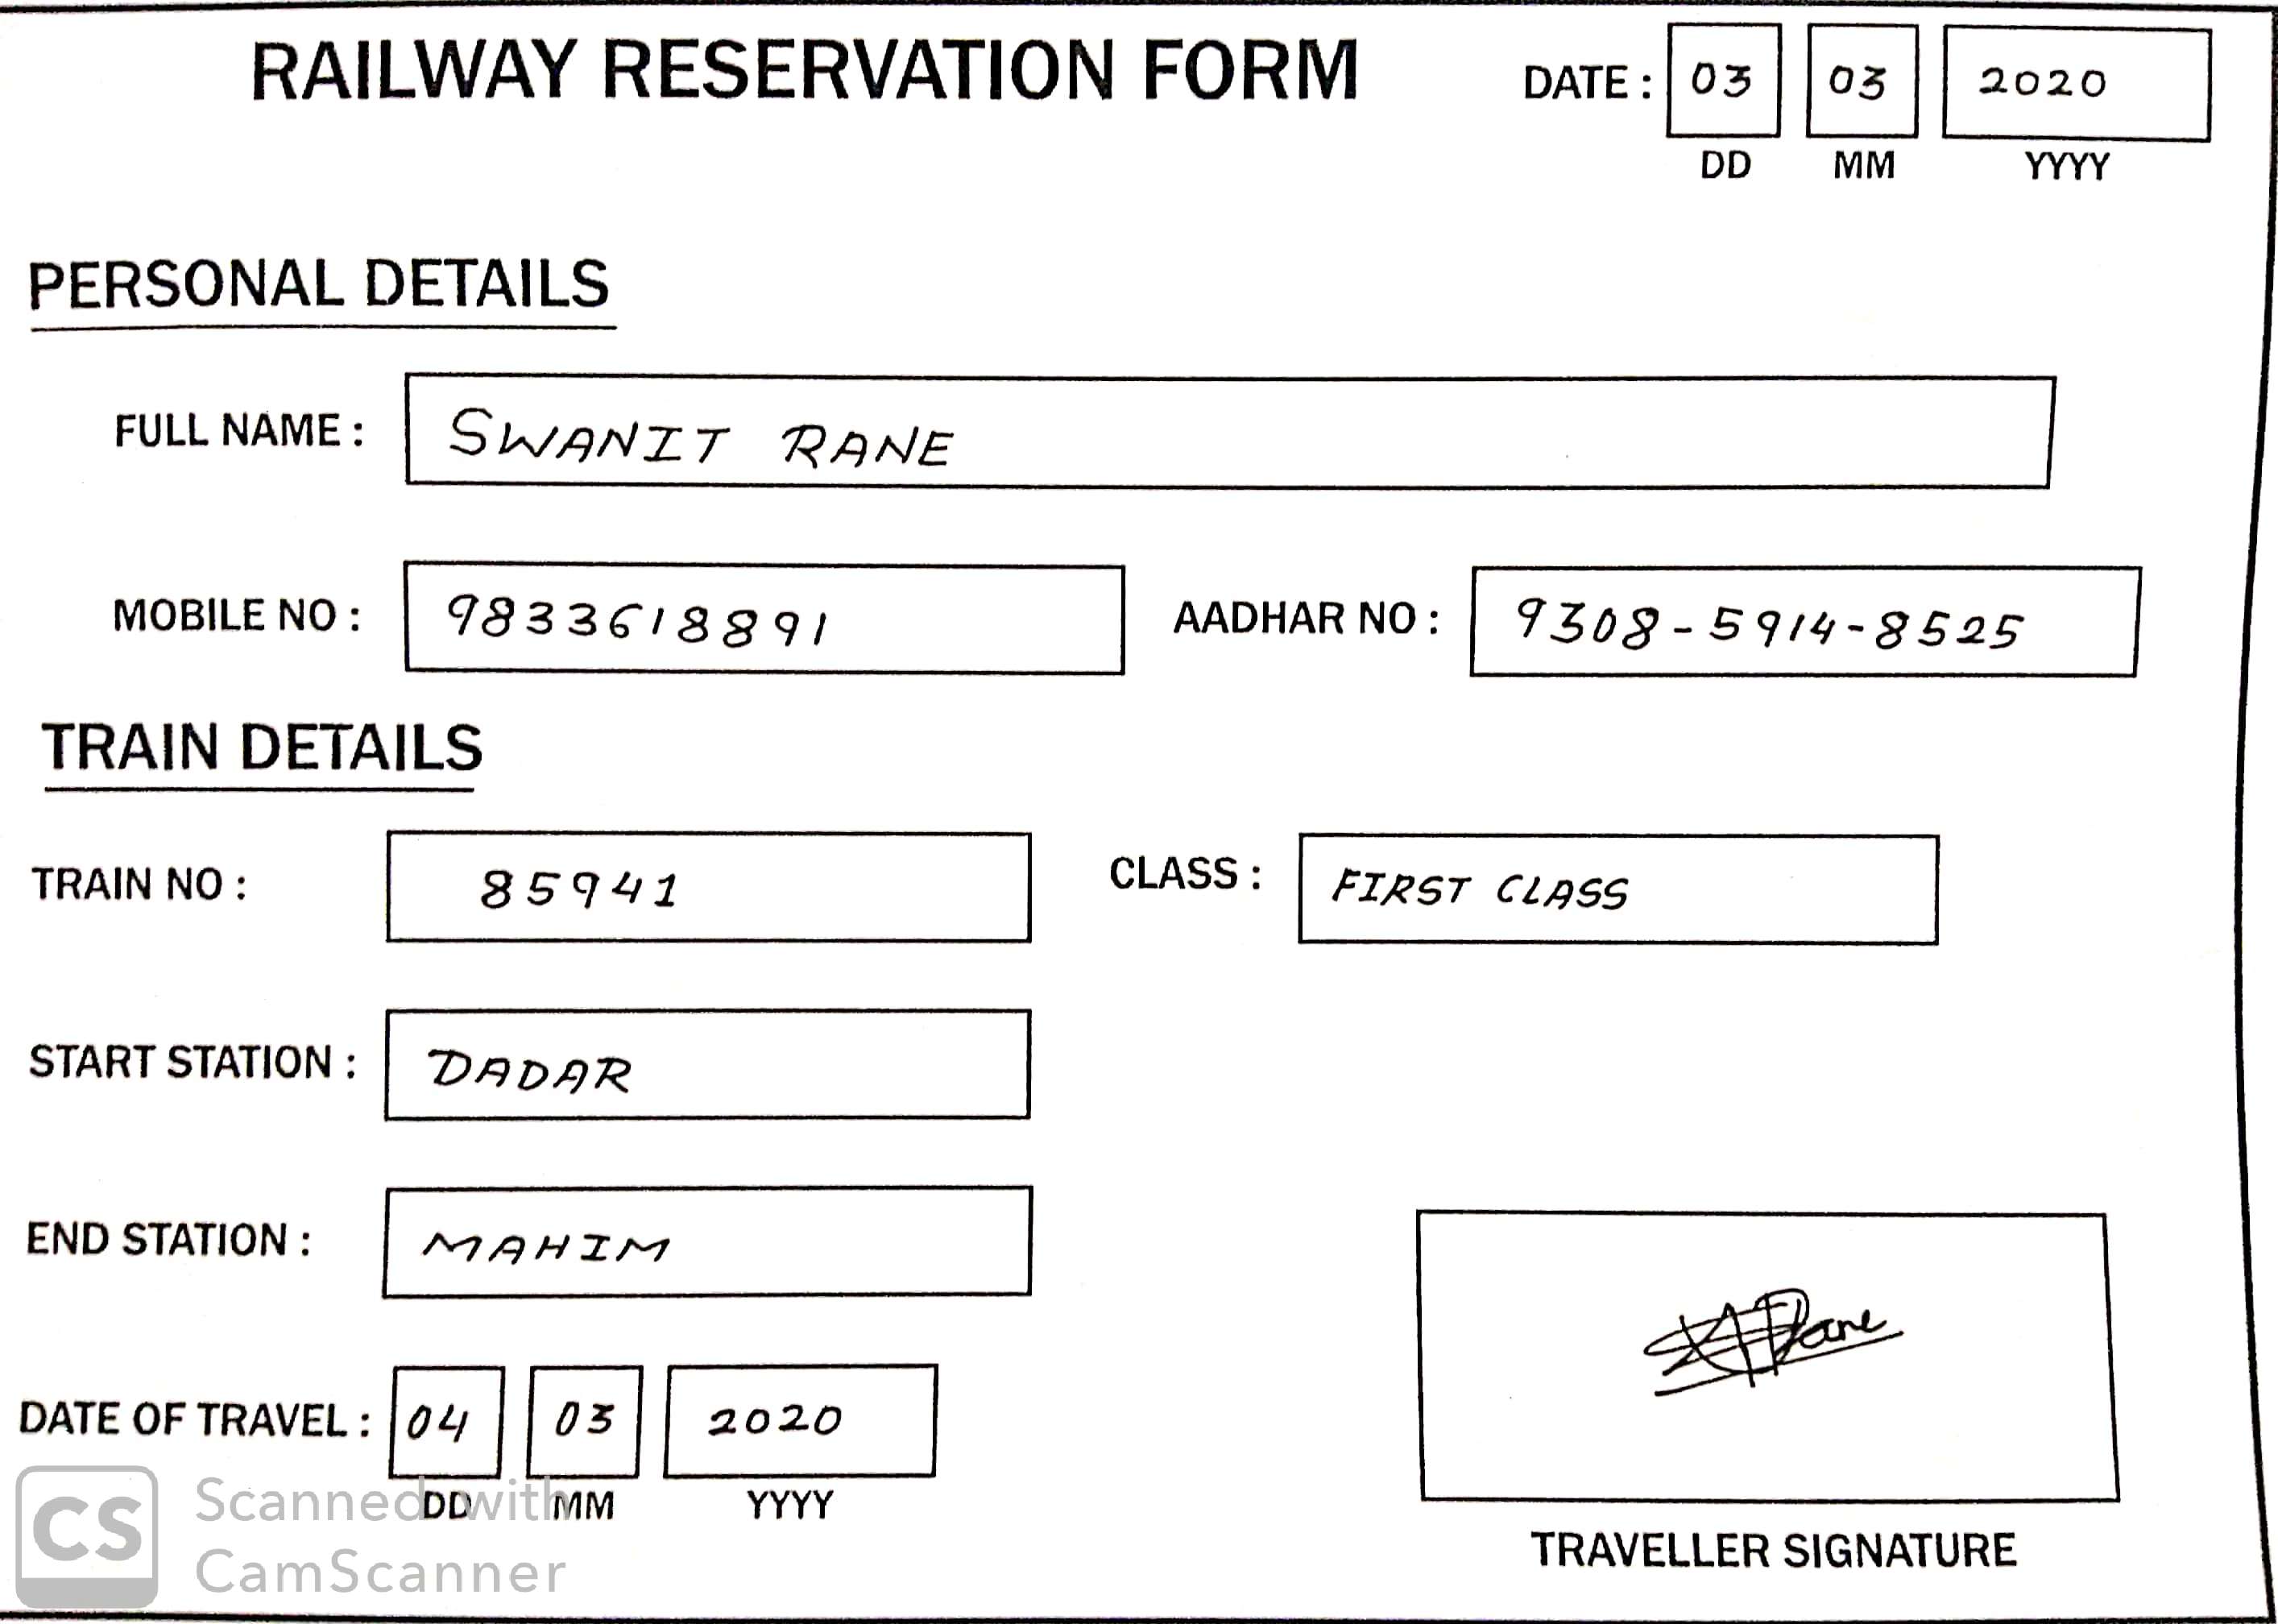 RAILWAY RESERVATION FORM DATE : 03 03 2020
DD MM YYYY
PERSONAL DETAILS
FULL NAME : SWANIT RANE
MOBILE NO : 9833618891 AADHAR NO : 9308-5914-8525
TRAIN DETAILS
TRAIN NO : 85941 CLASS : FIRST CLASS
START STATION : DADAR
END STATION : MAHIM
Rane
DATE OF TRAVEL : 04 03 2020
DD MM YYYY
TRAVELLER SIGNATURE
CS Scanned with
CamScanner